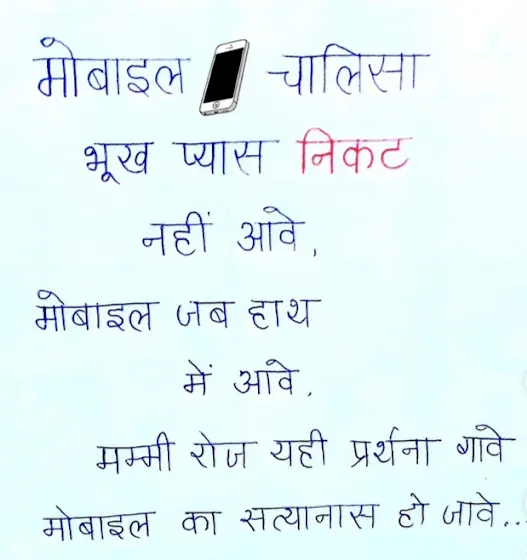 मोबाइल चालिसा
भूख प्यास निकट
नहीं आवे,
मोबाइल जब हाथ
में आवे.
मम्मी रोज यही प्रर्थना गावे
मोबाइल का सत्यानास हो जावे...